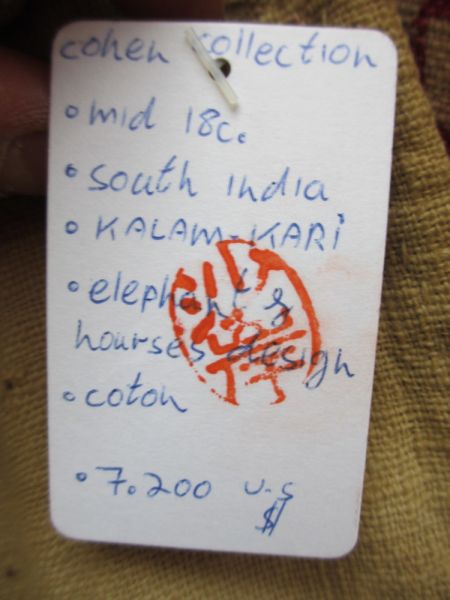 cohen collection
• mid 18c.
• south india
• KALAM-KARi
• elephant &
hourses design
• coton
• 7.200 u.s
$